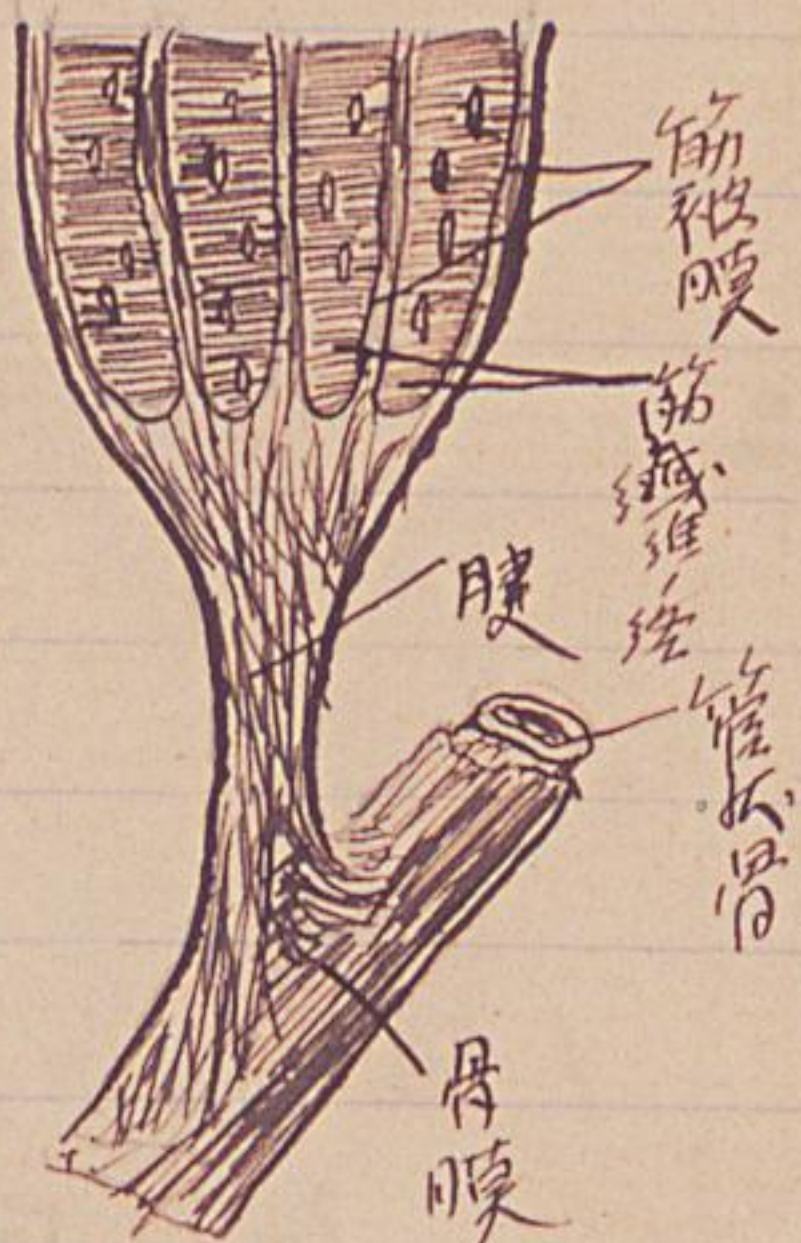 筋被膜
筋纖維
腱
管状骨
骨膜